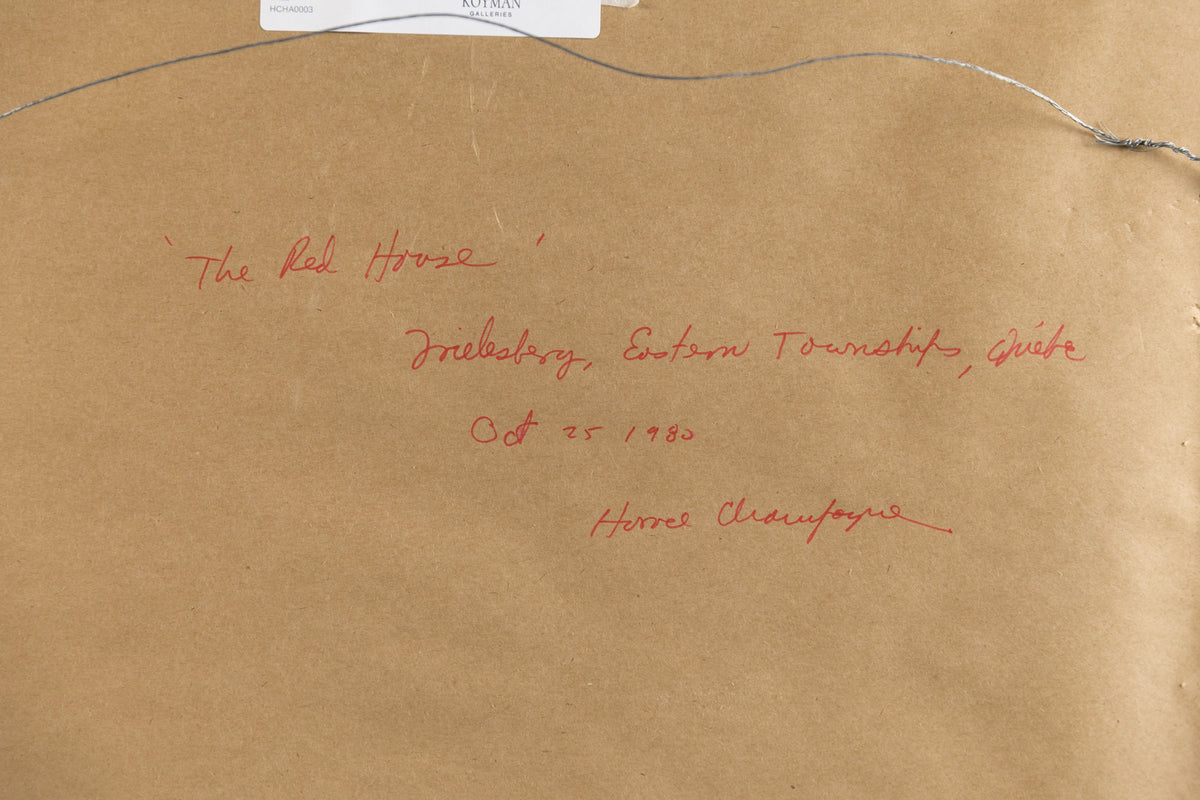 HCHA0003
KOYMAN
GALLERIES
'The Red House'
Eastern Townships,
Oct 25 1980
Horace Champagne